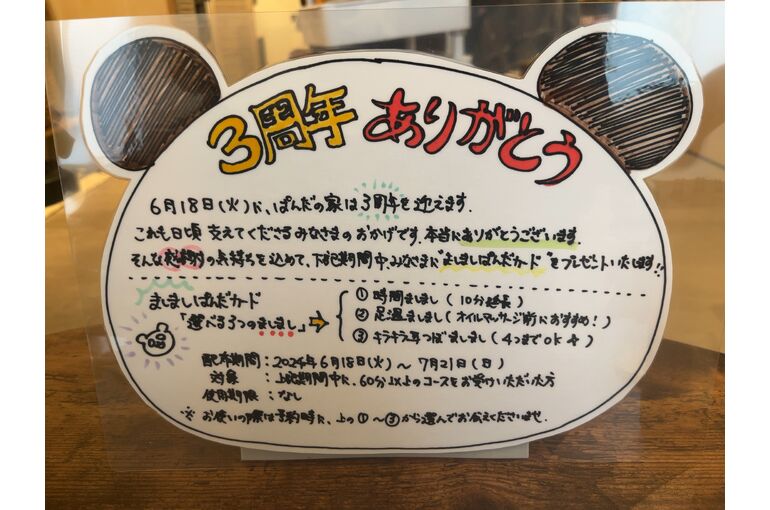 3周年 ありがとう
6月18日(火)に、ぱんだの家は3周年を迎えます.
これも日頃 支えてくださるみなさまの おかげです. 本当にありがとうございます.
そんな感謝の気持ちを込めて、下記期間中、みなさまに"ましましぱんだカード"をプレゼントいたします!!
ましましぱんだカード
「選べる3つのましまし」⇒
① 時間ましまし ( 10分延長 )
② 足温ましまし ( オイルマッサージ前におすすめ! )
③ キラキラ耳つぼましまし ( 4つまでOK )
配布期間 : 2024年6月18日(火) ～ 7月21日(日)
対象 : 上記期間中に、60分以上のコースをお受けいただいた方
使用期限 : なし
※ お使いの際は予約時に、上の①～③から選んでお伝えくださいませ.